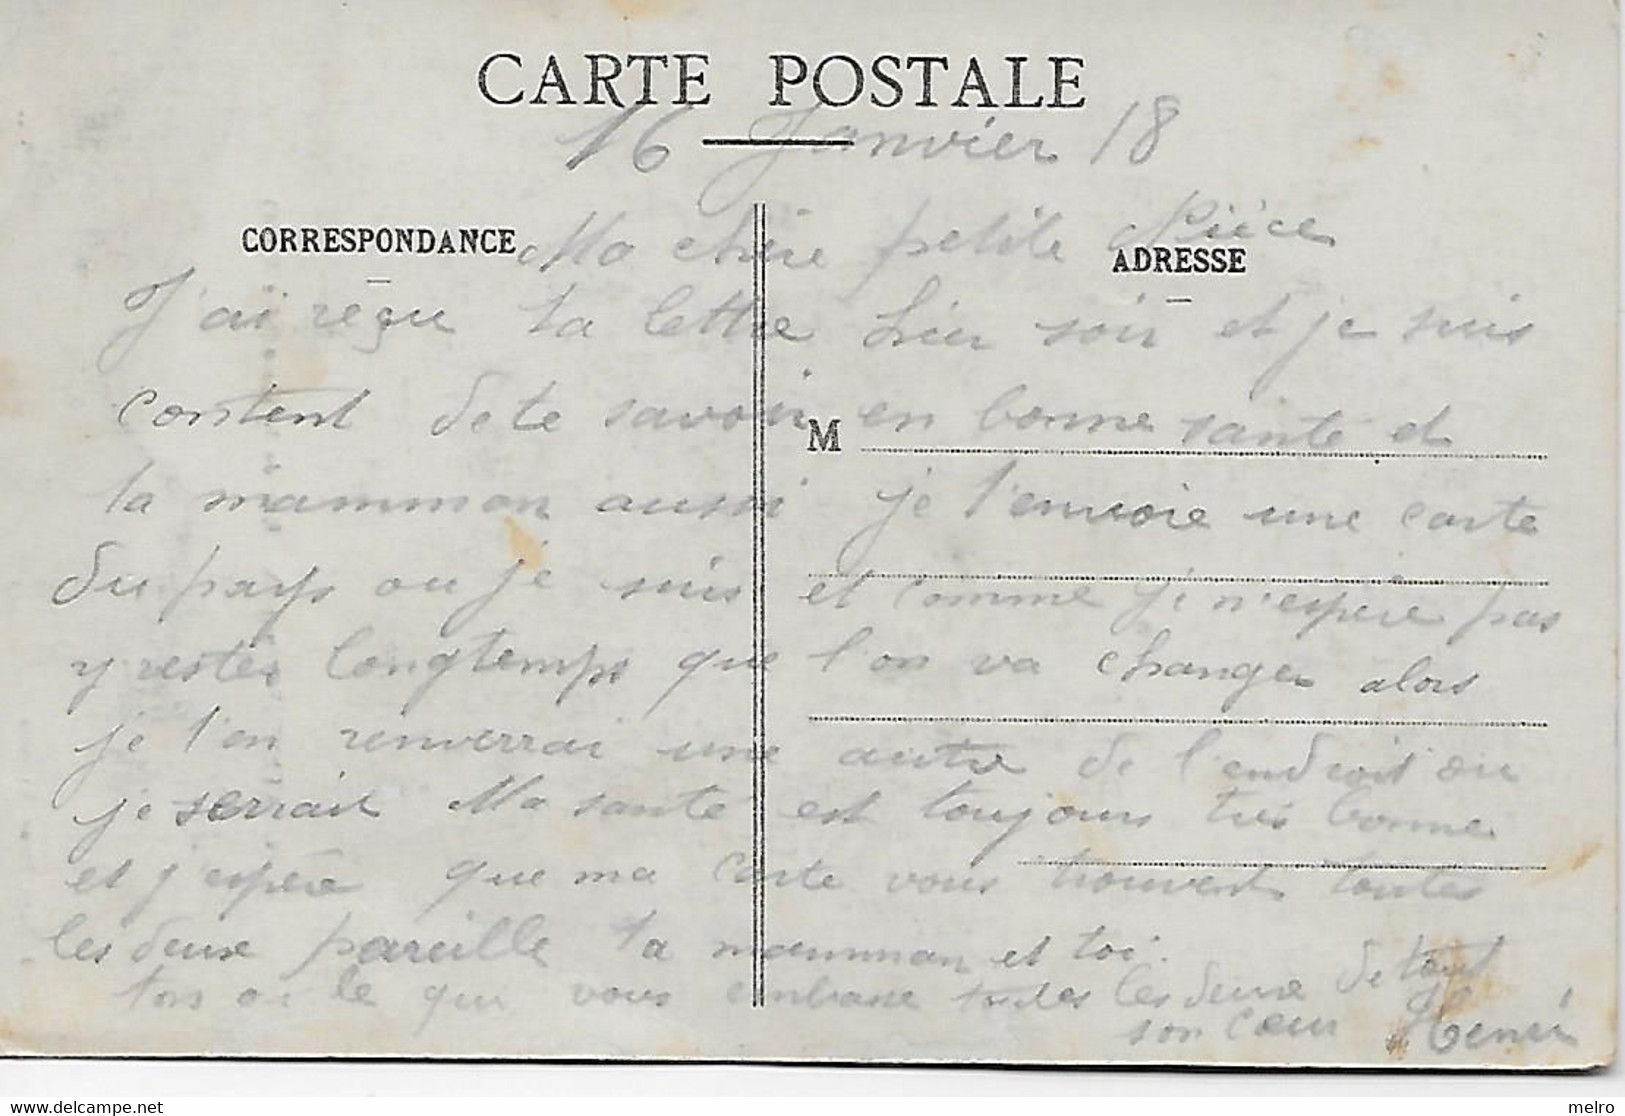 CARTE POSTALE
16 Janvier 18
CORRESPONDANCE
Ma chère petite Nièce
ADRESSE
J'ai réçu ta lettre hier soir et je suis
content de te savoir en bonne santé et
M
ta mammon aussi je t'envoie une carte
du pays ou je suis et comme je n'espère pas
y rester longtemps que l'on va changer alors
je t'en renverrai une autre de l'endroit ou
je serrait Ma santé est toujours très bonne
et j'espère que ma carte vous trouvent toutes
les deux pareille ta mamman et toi.
ton oncle qui vous embrasse toutes les deux de tout
son cœur Henri
Copyright delcampe.net
melro